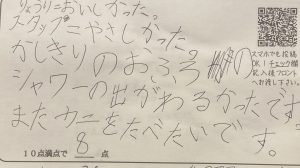 りょうり=おいしかった。
スタッフ=やさしかった。
かしきりのおふろの
シャワーの出がわるかったです。
またウニをたべたいです。
10点満点で 8 点
スマホでも投稿
OK！チェック欄
記入後フロント
へお渡し下さい。